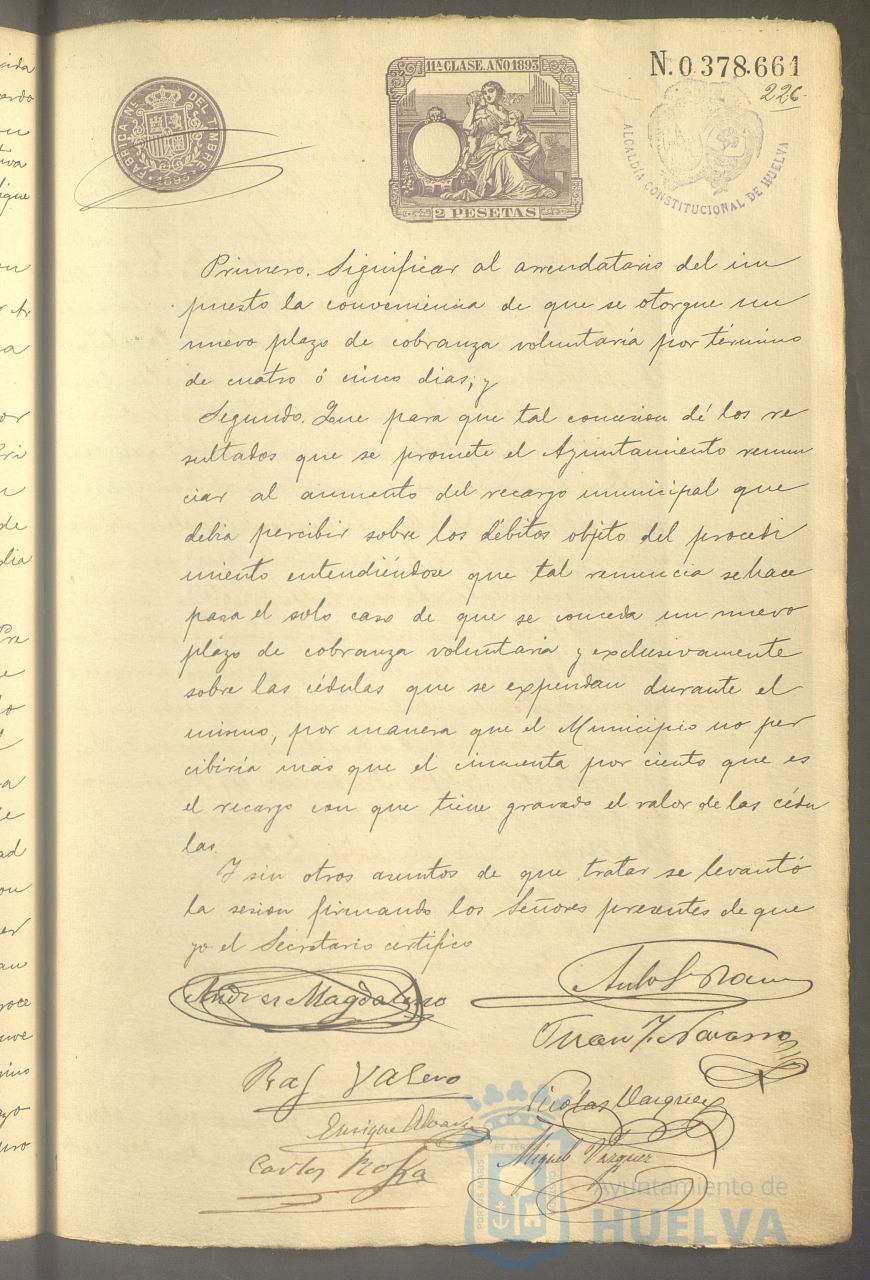 FABRICA NL. DEL TIMBRE
1893
11ª CLASE. AÑO 1893
2 PESETAS
N. 0.378.661
226
ALCALDIA CONSTITUCIONAL DE HUELVA
Primero. Significar al arrendatario del im
puesto la conveniencia de que se otorgue un
nuevo plazo de cobranza voluntaria por término
de cuatro ó cinco dias; y
Segundo. Que para que tal concesion dé los re
sultados que se promete el Ayuntamiento renun
ciar al aumento del recargo municipal que
debia percibir sobre los débitos objeto del procedi
miento entendiéndose que tal renuncia se hace
para el solo caso de que se conceda un nuevo
plazo de cobranza voluntaria y exclusivamente
sobre las cédulas que se expendan durante el
mismo, por manera que el Municipio no per
cibiría mas que el cincuenta por ciento que es
el recargo con que tiene gravado el valor de las cédu
las.
Y sin otros asuntos de que tratar se levantó
la sesion firmando los Señores presentes de que
yo el Secretario certifico
Juan J. Navarro
Raf Valero
Nicolas Vazquez
Enrique
Miguel Vazquez
Carlos
PORTUS MARIS
ET TERRE
Ayuntamiento de
HUELVA